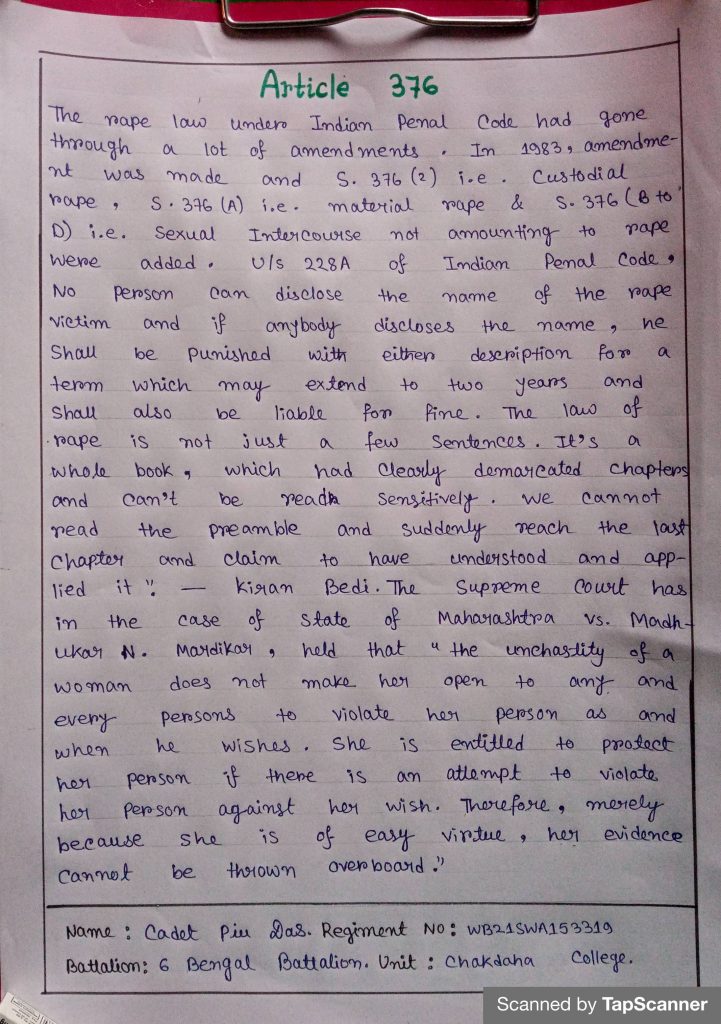 Article 376
The rape law under Indian Penal Code had gone
through a lot of amendments. In 1983, amendme-
nt was made and S. 376 (2) i.e. Custodial
rape, S. 376 (A) i.e. material rape & S. 376 (B to
D) i.e. Sexual Intercourse not amounting to rape
were added. U/s 228A of Indian Penal Code,
No person can disclose the name of the rape
victim and if anybody discloses the name, he
Shall be punished with either description for a
term which may extend to two years and
Shall also be liable for fine. The law of
rape is not just a few sentences. It's a
whole book, which had clearly demarcated chapters
and can't be read sensitively. We cannot
read the preamble and suddenly reach the last
Chapter and claim to have understood and app-
lied it". — Kiran Bedi. The Supreme Court has
in the case of State of Maharashtra vs. Madh-
ukar N. Mardikar, held that "the unchastity of a
woman does not make her open to any and
every persons to violate her person as and
when he wishes. She is entitled to protect
her person if there is an attempt to violate
her person against her wish. Therefore, merely
because she is of easy virtue, her evidence
cannot be thrown overboard."
Name: Cadet Piu Das. Regiment No: WB21SWA153319
Battalion: 6 Bengal Battalion. Unit: Chakdaha College.
Scanned by TapScanner